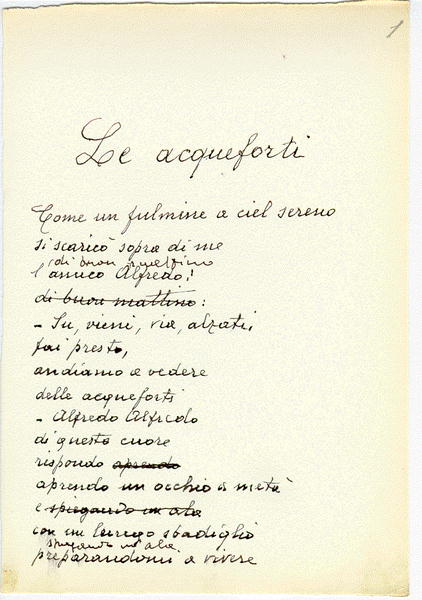 1
Le acqueforti
Come un fulmine a ciel sereno
si scaricò sopra di me
di buon mattino
l'amico Alfredo:
di buon mattino:
- Su, vieni, via, alzati,
fai presto,
andiamo a vedere
delle acqueforti
- Alfredo Alfredo
di questo cuore
rispondo aprendo
aprendo un occhio a metà
e spiegando un ala
con un lungo sbadiglio
spiegando un'ala
preparandomi a vivere